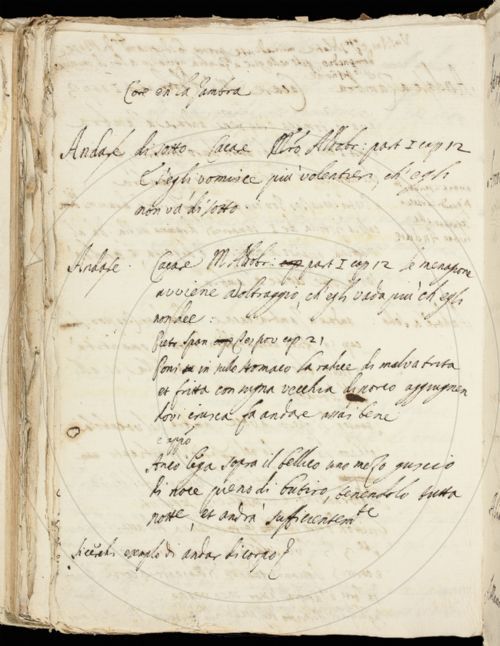 Core en la Zambra
Andare di sotto Cacare Mro Aldobr: part I cap 12
E s'egli vomisce più volentieri, ch'egli
non va di sotto.
Andare. Cacare M Aldobr: part I cap 12 se menagione
avviene ad oltraggio, ch'egli vada più ch'egli
non dee:
Piet: Span cap 21
Poni in su lo stomaco la radice di malva trita
et fritta con sugna vecchia di porco aggiugnen
dovi crusca fa andare assai bene
e appo
Anco lega sopra il bellico uno mezo guscio
di noce pieno di butiro, tenendolo tutta
notte, et andrà sufficientemte
exemplo di andar di corpo